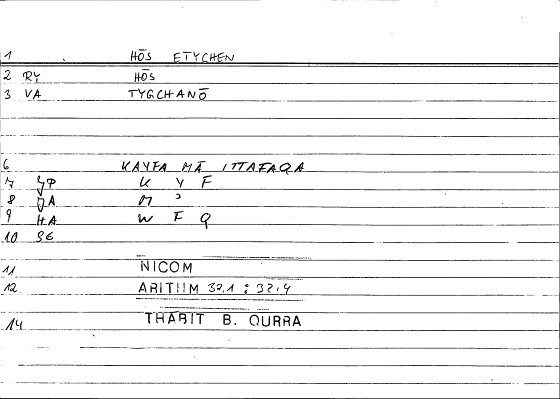 1 HŌS ETYCHEN
2 RY HŌS
3 VA TYGCHANŌ
6 KAYFA MĀ ITTAFAQA
7 JP K Y F
8 JA M ʾ
9 HA W F Q
10 S6
11 NICOM
12 ARITHM 32.1 : 32.4
14 THABIT B. QURRA